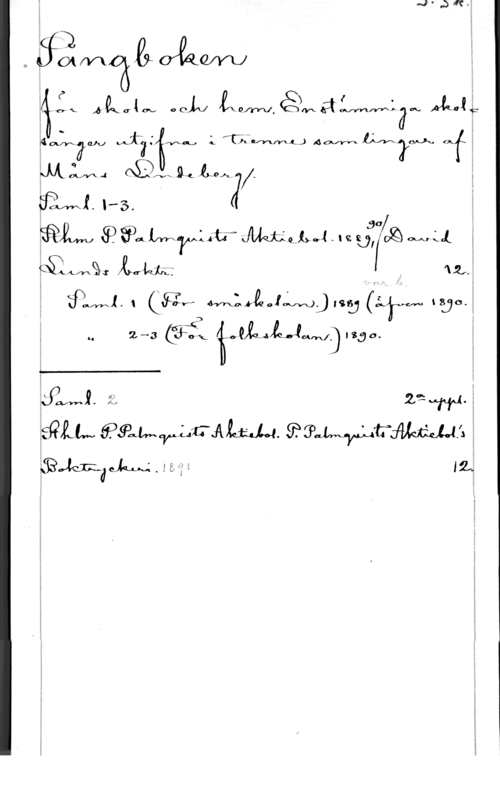 Sångboken
för skola och hem. Enstämmiga skol-
sånger utgifna i trenne samlingar af
Måns Lindeberg.
Saml. 1-3.
Sthm P. Palmquists Aktiebol. 1889, 90/ David
Lunds boktr. 12.
Saml. 1 (För småskolan.) 1889 (äfven 1890.
" 2-3 (För folkskolan.) 1890.
Saml. 2 2a uppl.
Sthlm P. Palmquists Aktiebol. P. Palmquists Aktiebol's
Boktryckeri. 1891 12.